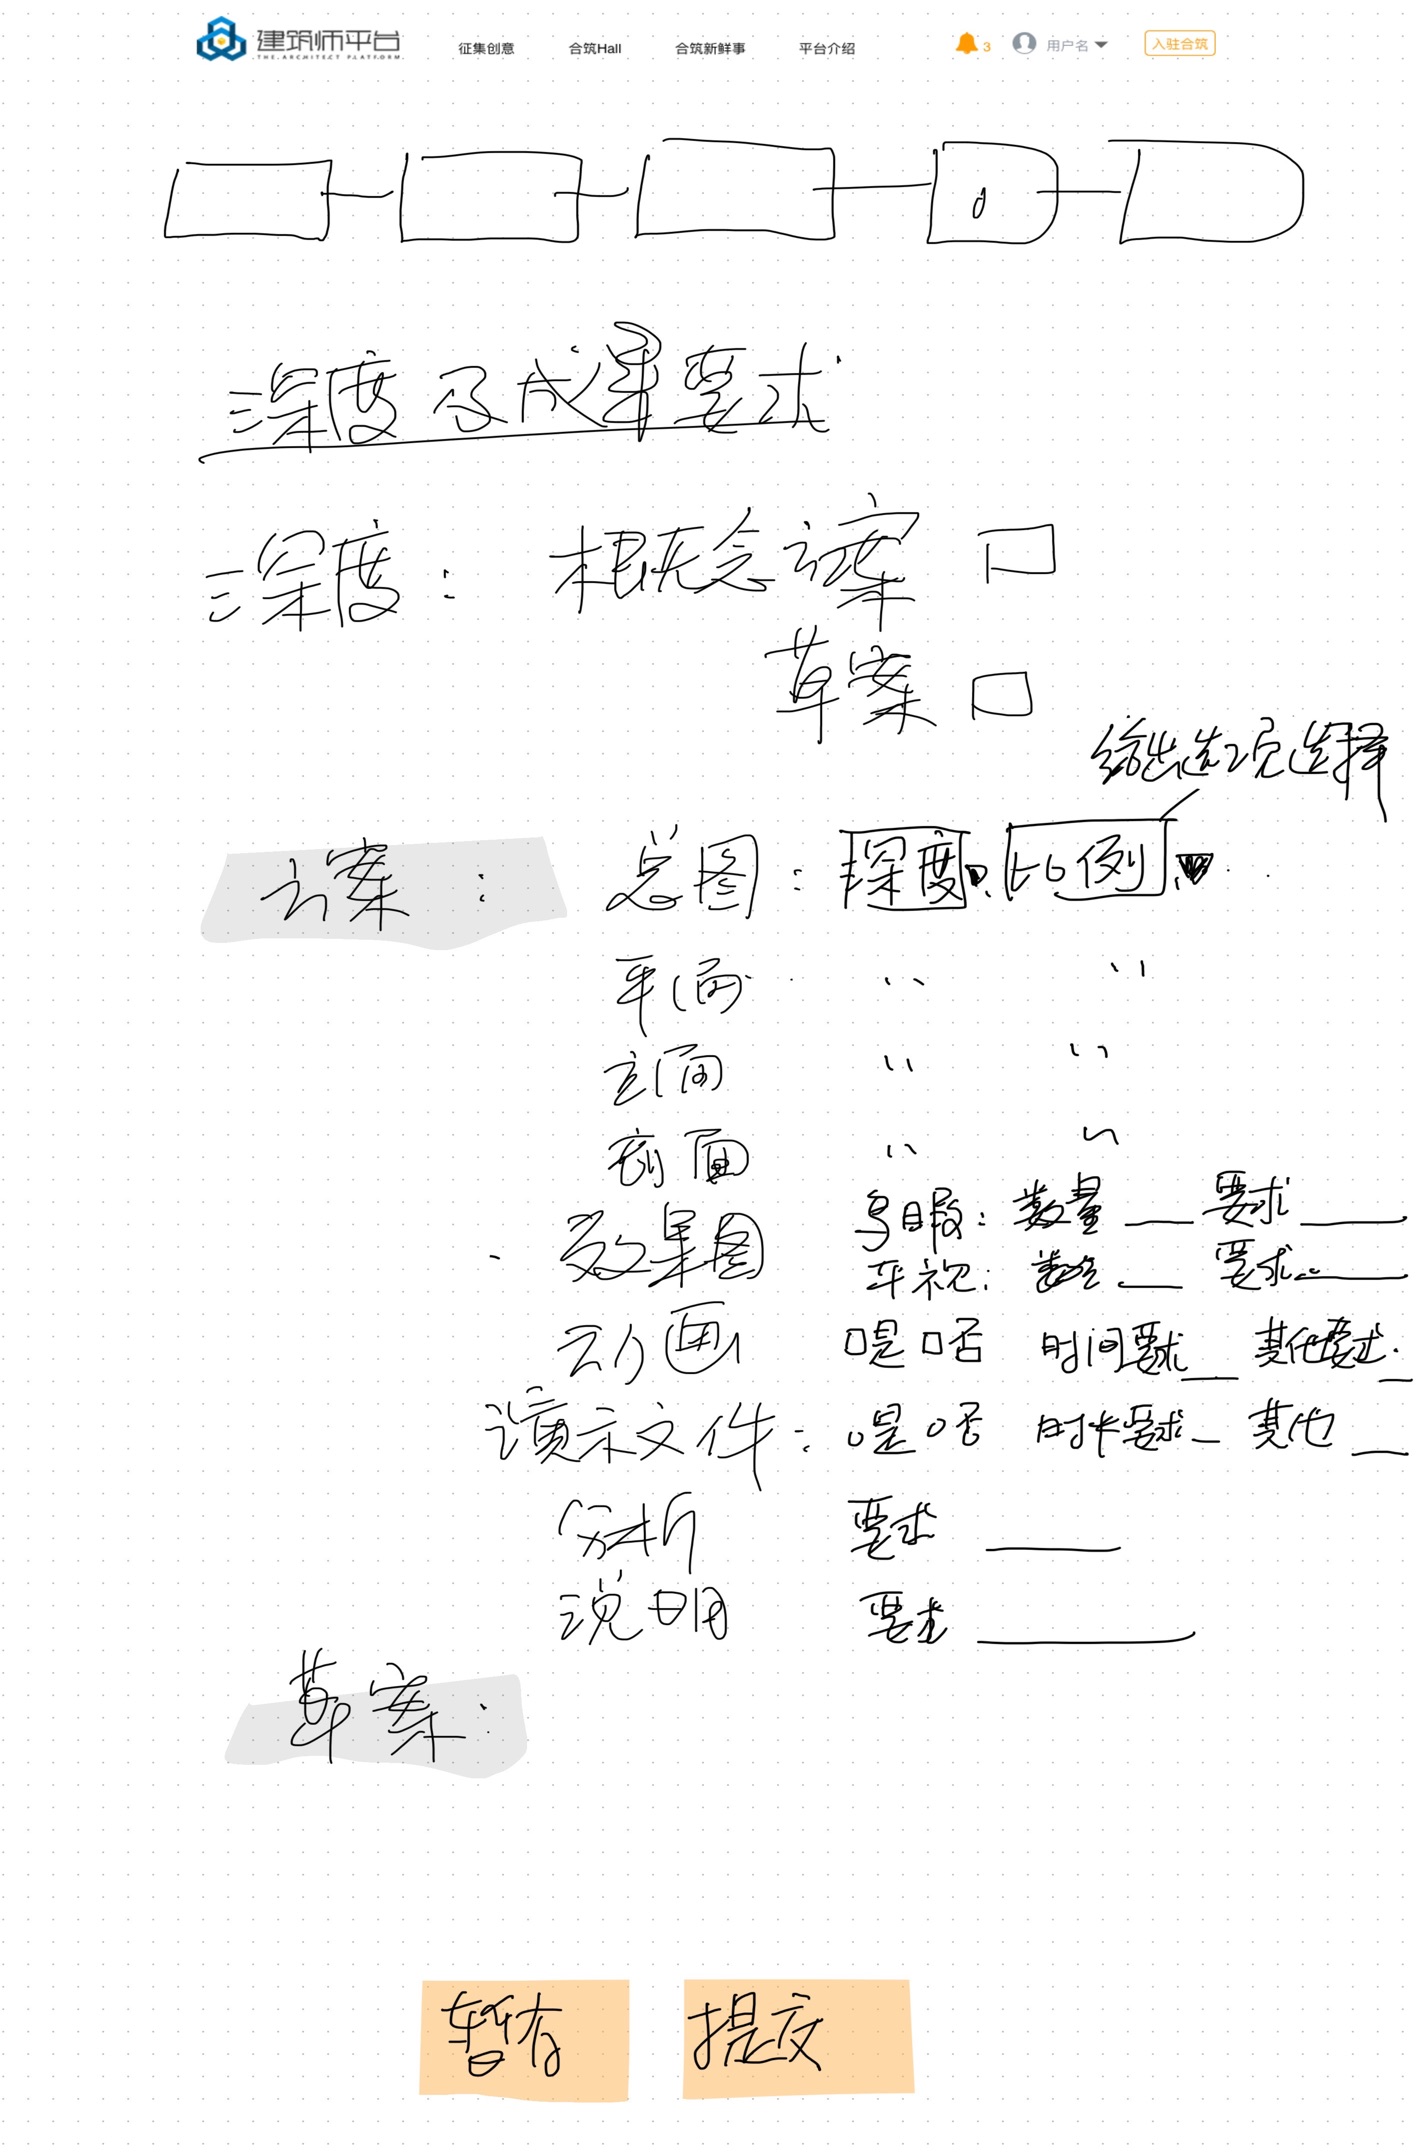 建筑师平台
THE ARCHITECT PLATFORM
征集创意 合筑Hall 合筑新鲜事 平台介绍 3 用户名 入驻合筑
深度及成果要求
深度: 概念方案
草案
给出选项选择
方案: 总图: 深度 比例
平面 〃 〃
立面 〃 〃
剖面 〃 〃
效果图 鸟瞰: 数量 要求
平视: 数量 要求
动画 是 否 时间要求 其他要求
演示文件: 是 否 时长要求 其他
分析 要求
说明 要求
草案:
暂存 提交